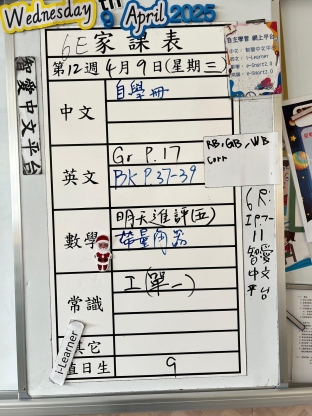 Wednesday
9 April 2025
6E家課表
第12週4月9日(星期三)
智愛中文平台
自主學習 網上平台
中文
自學冊
英文
Gr P.17
BK P.37-39
RB, GB, WB
Corr
數學
明天進評(五)
帶量陶器
常識
工(單一)
其它
值日生
9
i-Learner
智愛中文平台